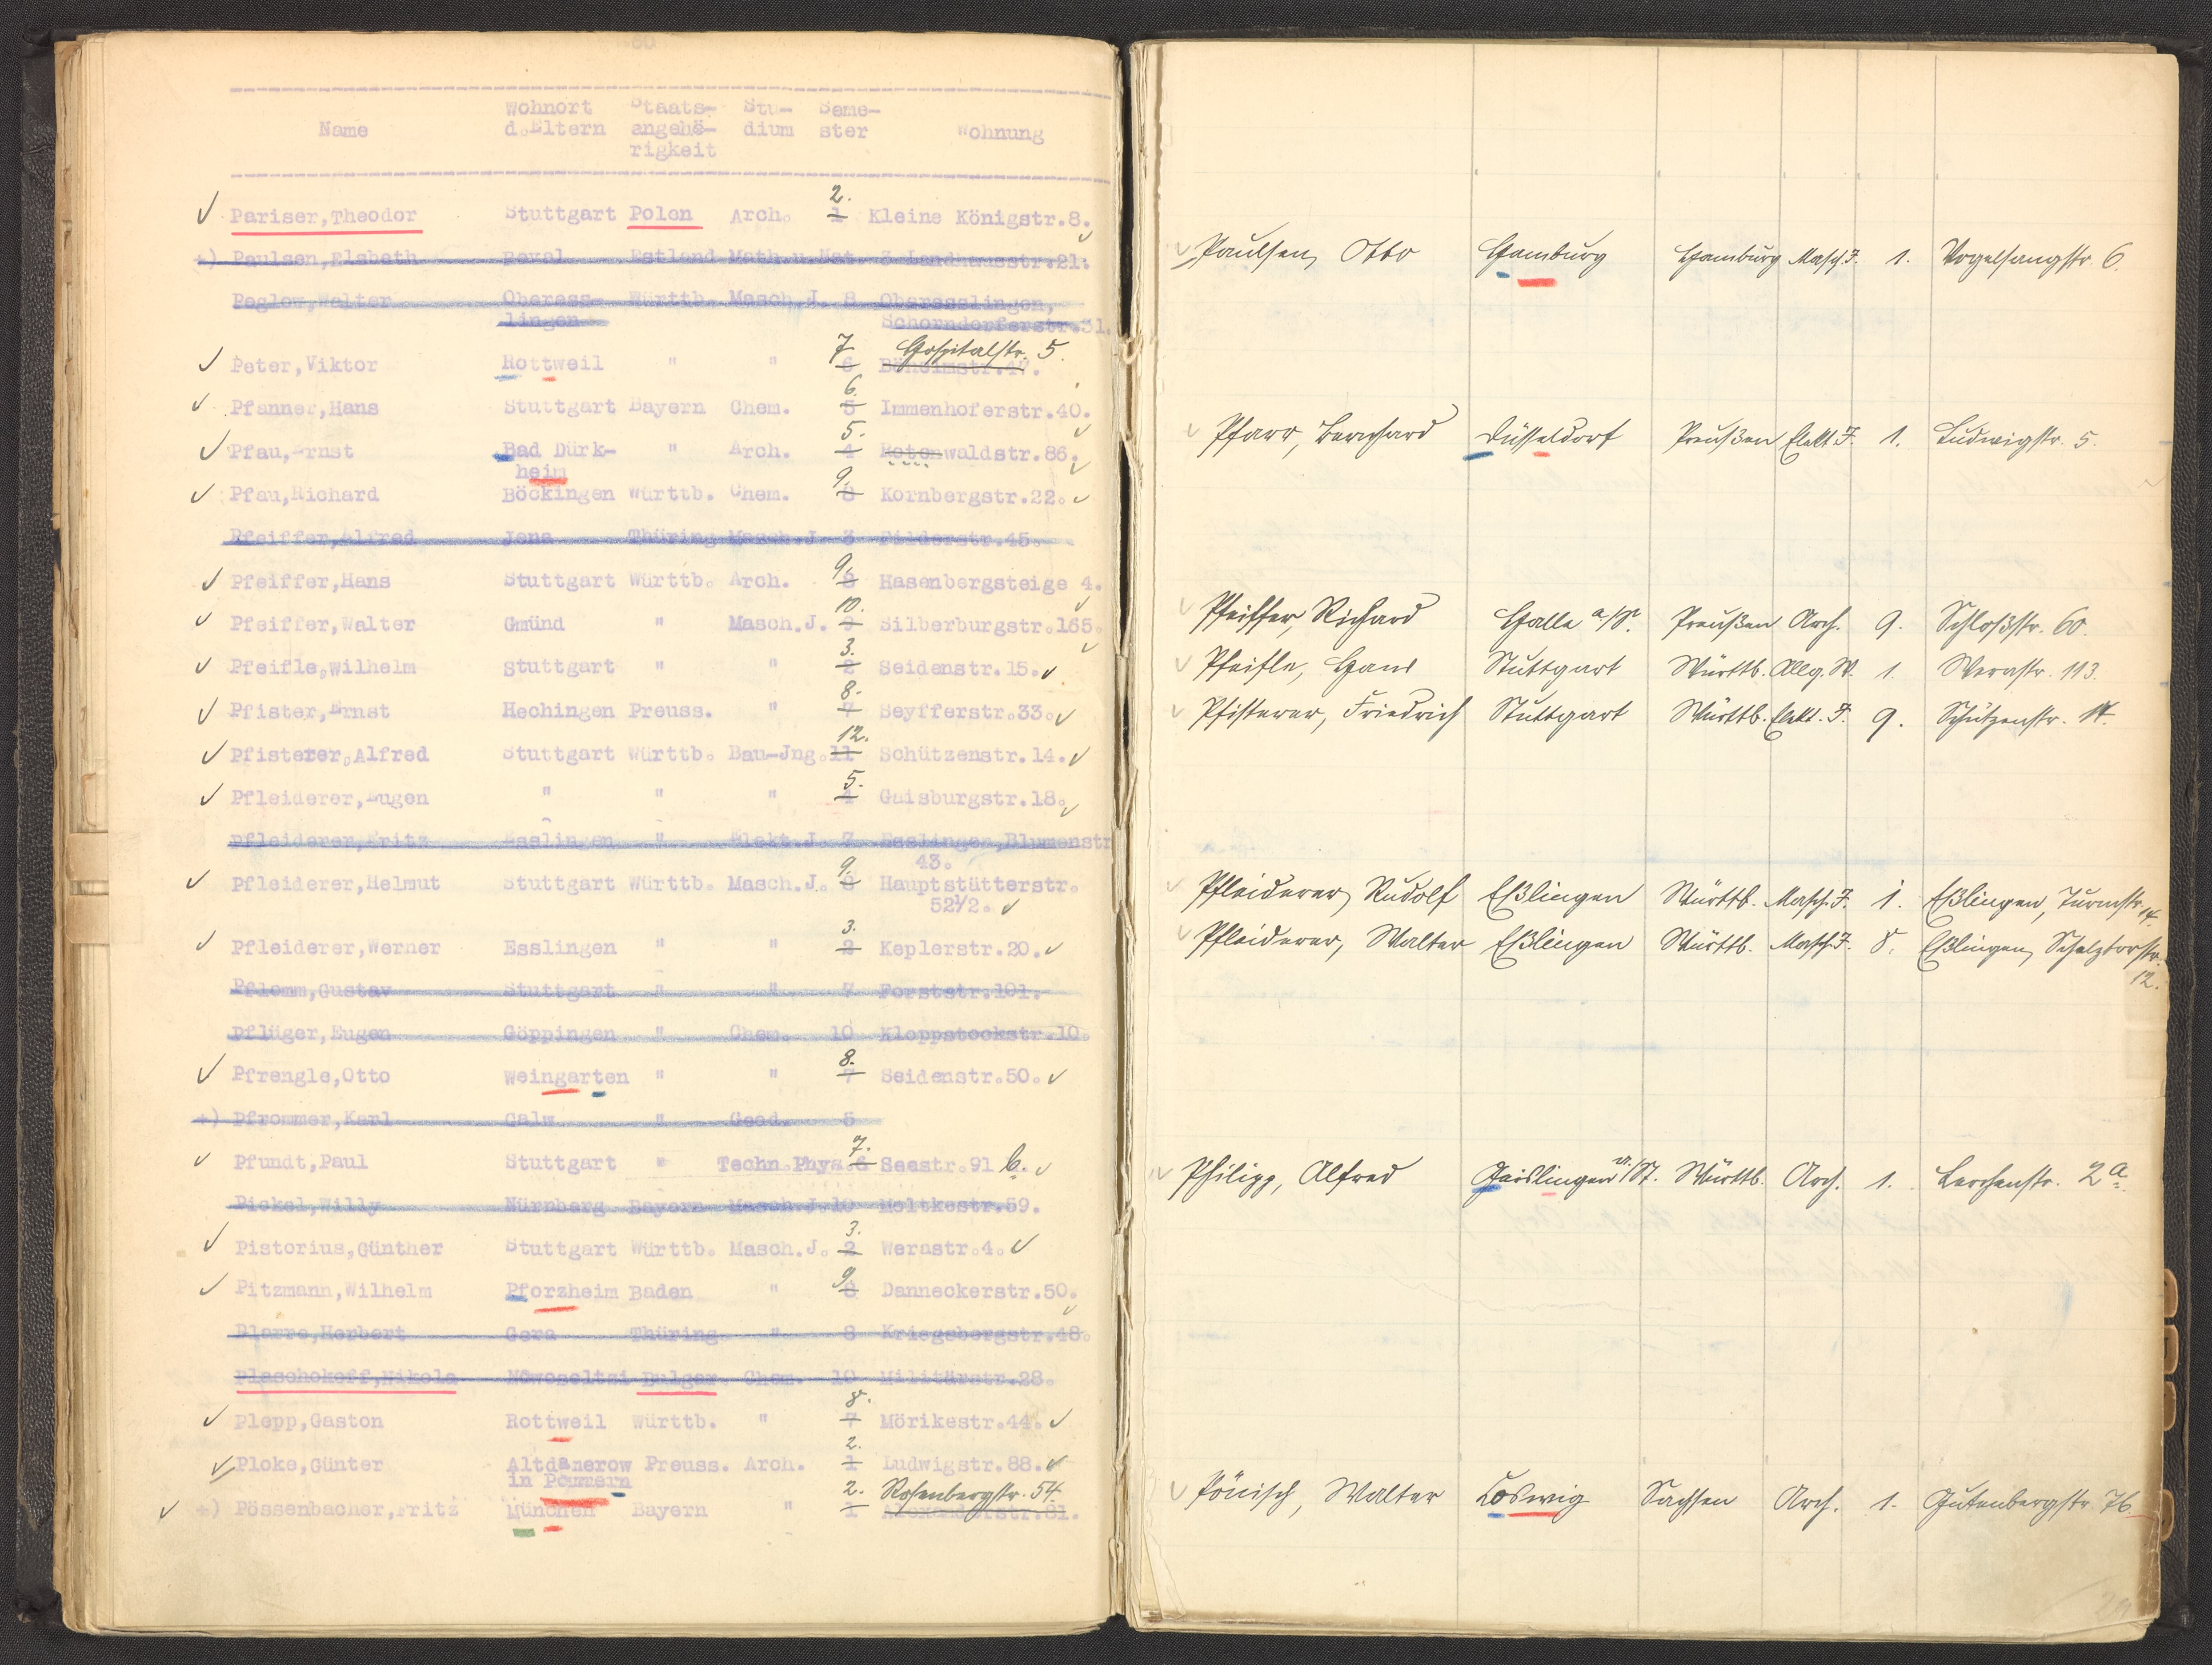 Name Wohnort d.Eltern Staats-angehö-rigkeit Stu-dium Seme-ster Wohnung
Pariser,Theodor Stuttgart Polen Arch. 1 2. Kleine Königstr.8.
+) Paulsen,Elsbeth Reval Estland Math.u.Nat. 3 Landhausstr.21.
Peglow,Walter Oberess- Württb. Masch.J. 8 Oberesslingen,
lingen Schorndorferstr.31.
7 Hospitalstr. 5.
Peter,Viktor Rottweil " " 6 Böheimstr.47.
Pfanner,Hans Stuttgart Bayern Chem. 5 6. Immenhoferstr.40.
Pfau,Ernst Bad Dürk- " Arch. 4 5. Rotenwaldstr.86.
heim
Pfau,Richard Böckingen Württb. Chem. 8 9. Kornbergstr.22.
Pfeiffer,Alfred Jena Thüring Masch.J 3 Filderstr.45.
Pfeiffer,Hans Stuttgart Württb. Arch. 8 9. Hasenbergsteige 4.
Pfeiffer,Walter Gmünd " Masch.J. 9 10. Silberburgstr.165.
Pfeifle,Wilhelm Stuttgart " " 2 3. Seidenstr.15.
Pfister,Ernst Hechingen Preuss. " 7 8. Seyfferstr.33.
Pfisterer,Alfred Stuttgart Württb. Bau-Jng. 11 12. Schützenstr.14.
Pfleiderer,Eugen " " " 4 5. Gaisburgstr.18.
Pfleiderer,Fritz Esslingen " Elekt.J. 7 Esslingen,Blumenstr
43.
Pfleiderer,Helmut Stuttgart Württb. Masch.J. 8 9. Hauptstätterstr.
52½.
Pfleiderer,Werner Esslingen " " 2 3. Keplerstr.20.
Pflomm,Gustav Stuttgart " " 7 Forststr.101.
Pflüger,Eugen Göppingen " Chem. 10 Kloppstockstr.10.
Pfrengle,Otto Weingarten " " 7 8. Seidenstr.50.
+) Pfrommer,Karl Calw " Geod. 5
Pfundt,Paul Stuttgart " Techn.Phys. 6 7. Seestr.91 b.
Pickel,Willy Nürnberg Bayern Masch.J. 10 Moltkestr.59.
Pistorius,Günther Stuttgart Württb. Masch.J. 2 3. Werastr.4.
Pitzmann,Wilhelm Pforzheim Baden " 8 9 Danneckerstr.50.
Plarre,Herbert Gera Thüring. " 8 Kriegsbergstr.48.
Plaschokoff,Nikola Nowoseltzi Bulgar. Chem. 10 Militärstr.28.
Plepp,Gaston Rottweil Württb. " 7 8. Mörikestr.44.
Ploke,Günter Altdanerow Preuss. Arch. 1 2. Ludwigstr.88.
in Pommern 2. Rosenbergstr. 54.
+) Pössenbacher,Fritz München Bayern " 1 Alexanderstr.81.
Paulsen, Otto Hamburg Hamburg Masch.I. 1. Vogelsangstr. 6.
Pfarr, Bernhard Düsseldorf Preußen Elekt.I. 1. Ludwigstr. 5.
Pfeiffer, Richard Halle a/S. Preußen Arch. 9. Schloßstr. 60.
Pfeifle, Hans Stuttgart Württb. Allg.W. 1. Werastr. 113.
Pfisterer, Friedrich Stuttgart Württb. Elekt. I. 9. Schützenstr. 14.
Pfleiderer, Rudolf Eßlingen Württb. Masch.I. 1. Eßlingen, Turmstr. 14.
Pfleiderer, Walter Eßlingen Württb. Masch.I. 8. Eßlingen, Schelztorstr.
12.
Philipp, Alfred Geislingen a/St. Württb. Arch. 1. Lerchenstr. 2a.
Pönisch, Walter Coswig Sachsen Arch. 1. Gutenbergstr. 76.